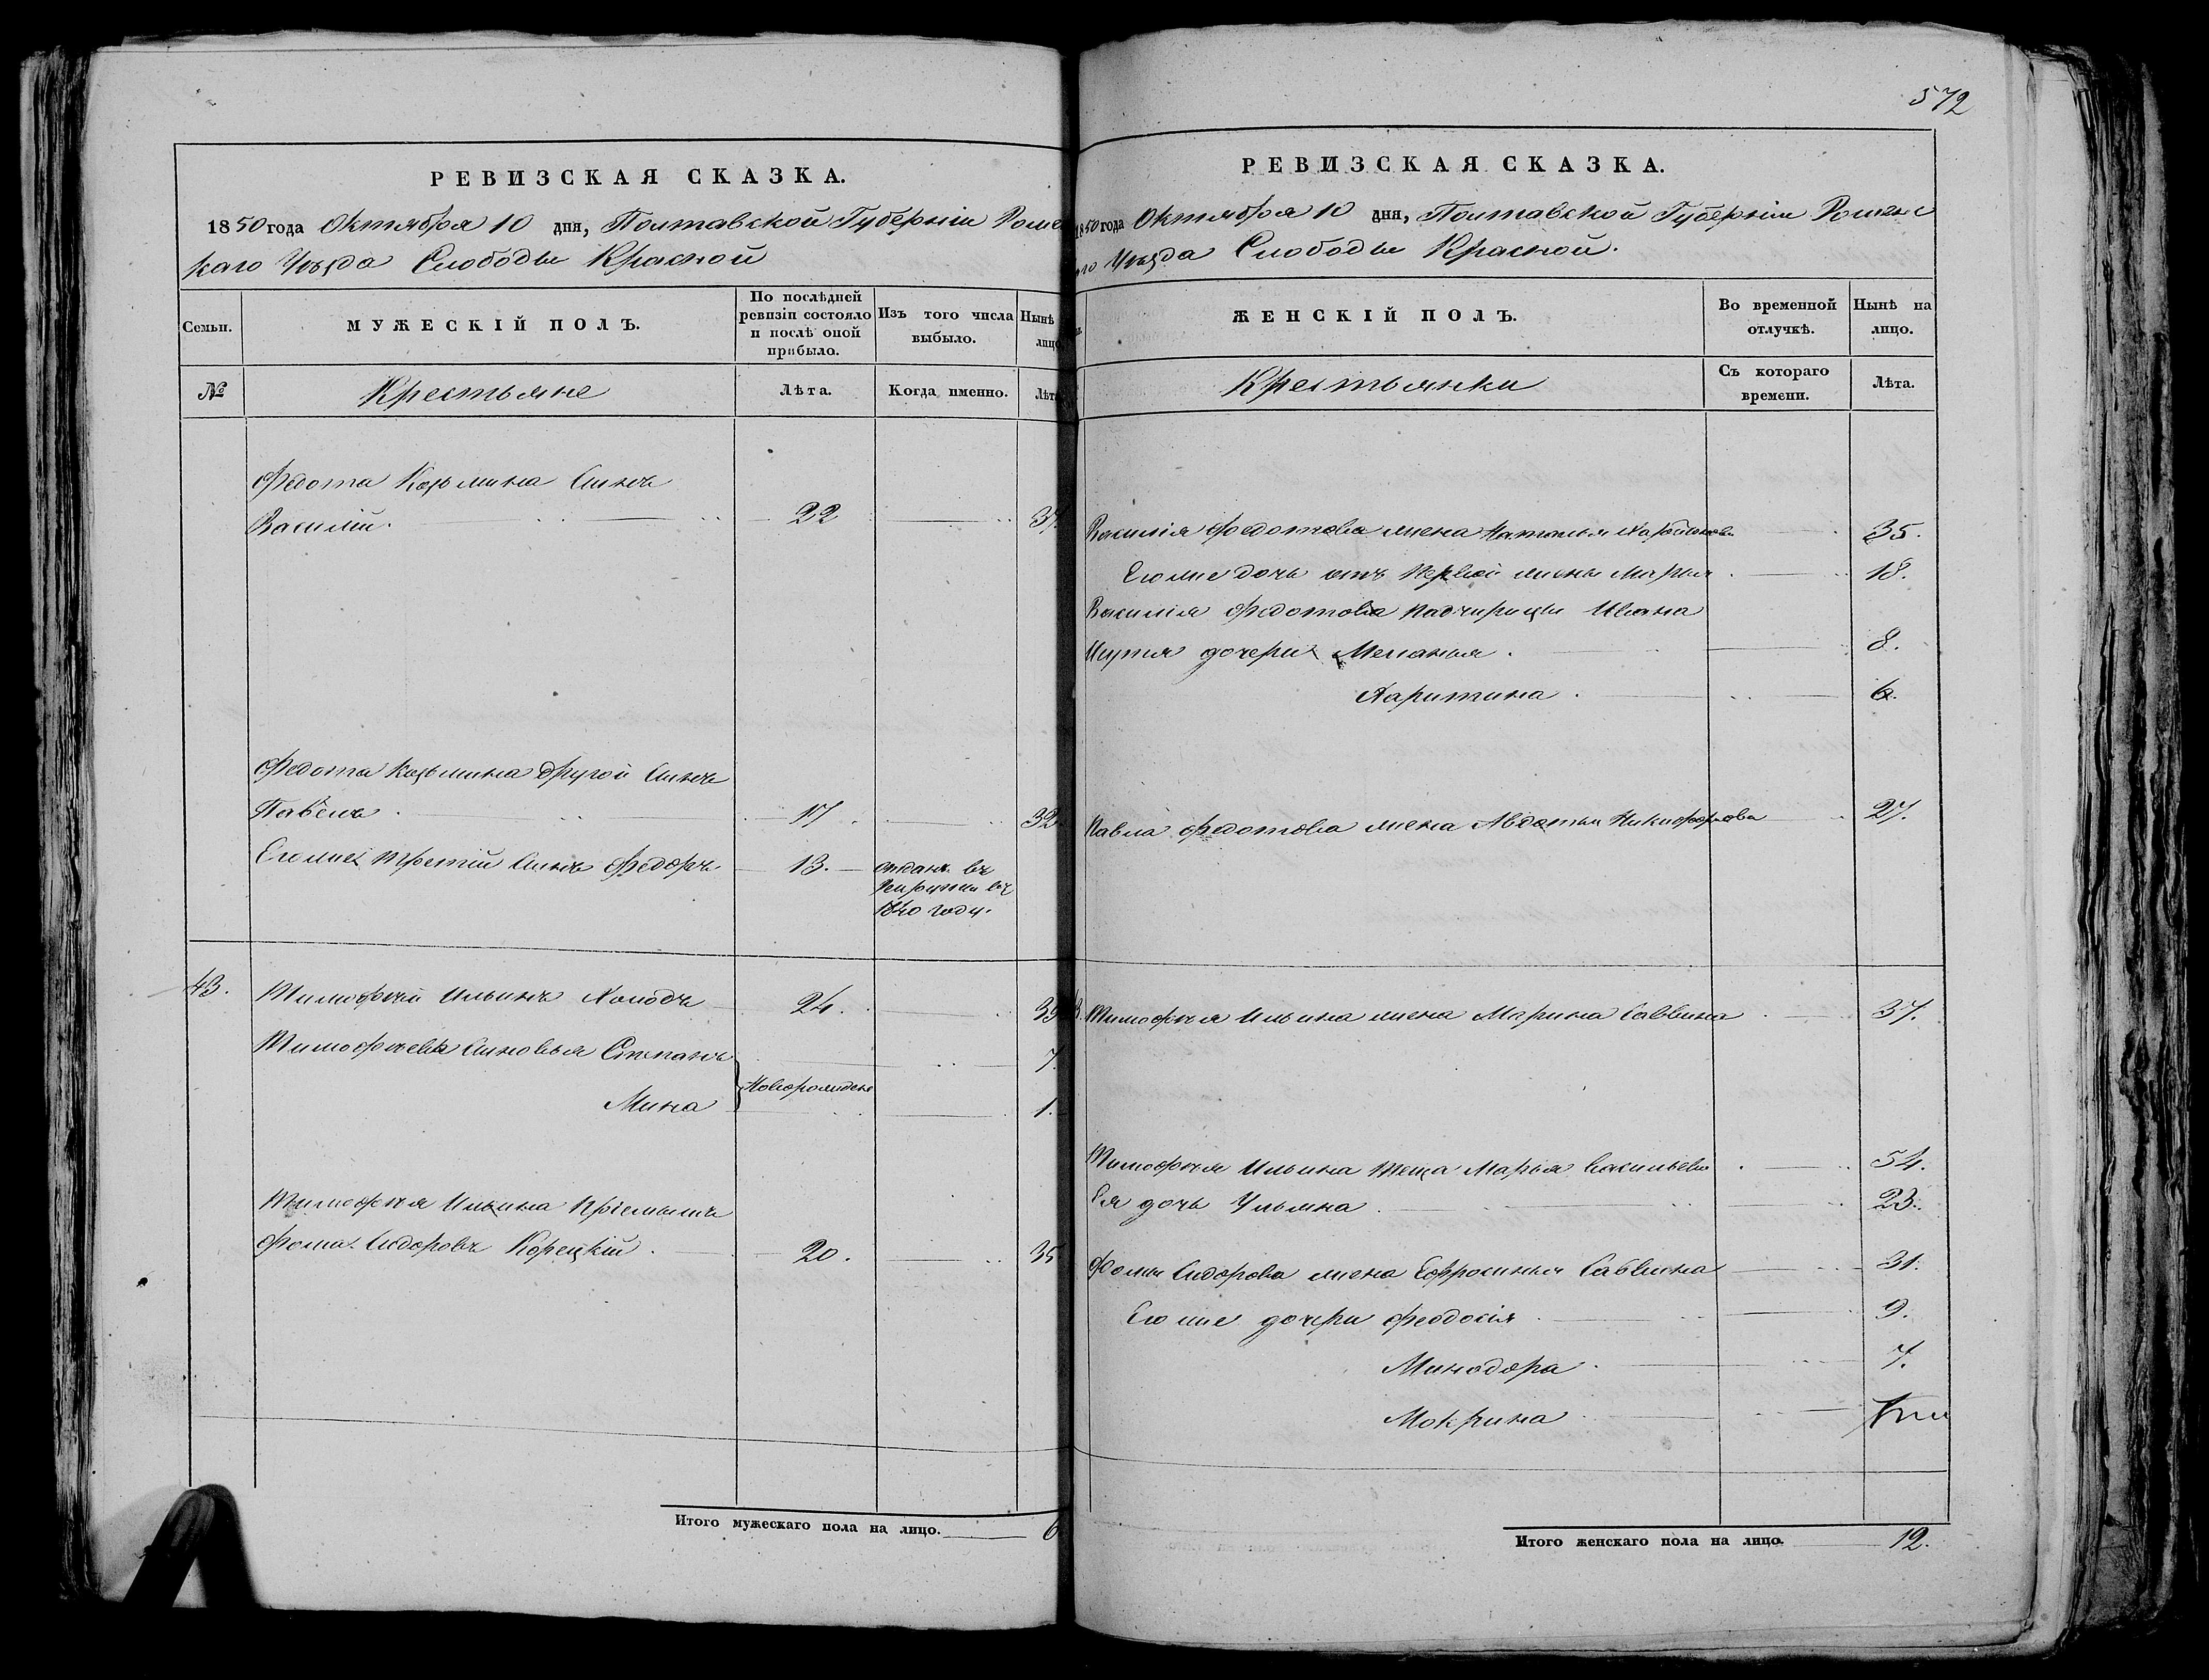 РЕВИЗСКАЯ СКАЗКА.
1850 года Октября 10 дня, Полтавской Губерніи Роме
каго Уѣзда Слободы Красной
Семьи.
МУЖЕСКІЙ ПОЛЪ.
По послѣдней ревизіи состояло и послѣ оной прибыло.
Изъ того числа выбыло.
Нынѣ лицо
№
Крестьяне
Лѣта.
Когда именно.
Лѣта
Федота Козьмина Сынъ
Василій. 22 37
Федота Козьмина другой Сынъ
Павелъ. 17 32
Его же третій Сынъ Федоръ 13. отданъ въ
рекруты въ
1840 году.
43. Тимофѣй Ильинъ Холодъ 24. 39
Тимофѣевы Сыновья Степанъ 7.
Новорожден
Мина 1.
Тимофѣя Ильина пріемышъ
Фома Сидоровъ Корецкій. 20. 35
Итого мужескаго пола на лицо. 6
572
РЕВИЗСКАЯ СКАЗКА.
1850 года Октября 10 дня, Полтавской Губерніи Роменс
го Уѣзда Слободы Красной.
ЖЕНСКІЙ ПОЛЪ.
Во временной отлучкѣ.
Нынѣ на лицо.
Крестьянки
Съ котораго времени.
Лѣта.
Василія Федотова жена Наталья 35.
Его же дочь отъ первой жены Марья 18.
Василія Федотова падчерицы Ивана
дочери Меланья. 8.
Харитина. 6.
Павла Федотова жена Авдотья Никифорова 27.
Тимофѣя Ильина жена Марина Саввина 37.
Тимофѣя Ильина теща Марья Васильева 54.
Ея дочь Ульяна. 23.
Фомы Сидорова жена Ефросинья Саввина 31.
Его же дочери Феодосія 9.
Минодора. 7.
Мокрина
Итого женскаго пола на лицо. 12.